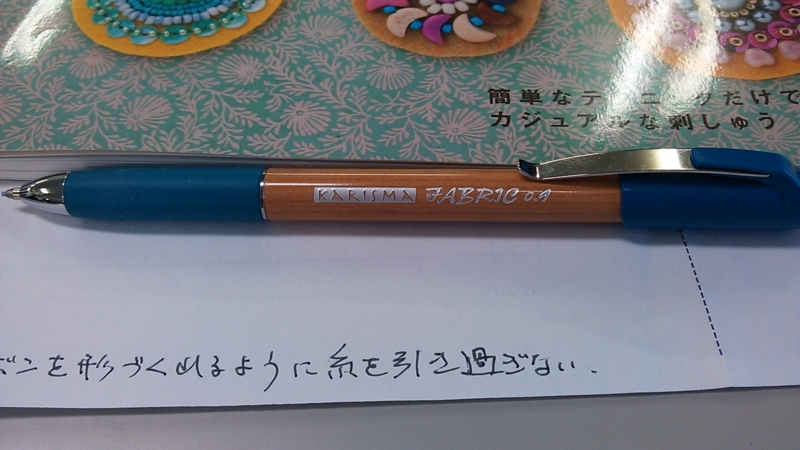 簡単なテクニックだけで
カジュアルな刺しゅう
KARISMA FABRIC 0.9
ボンを形づくれるように糸を引き過ぎない.